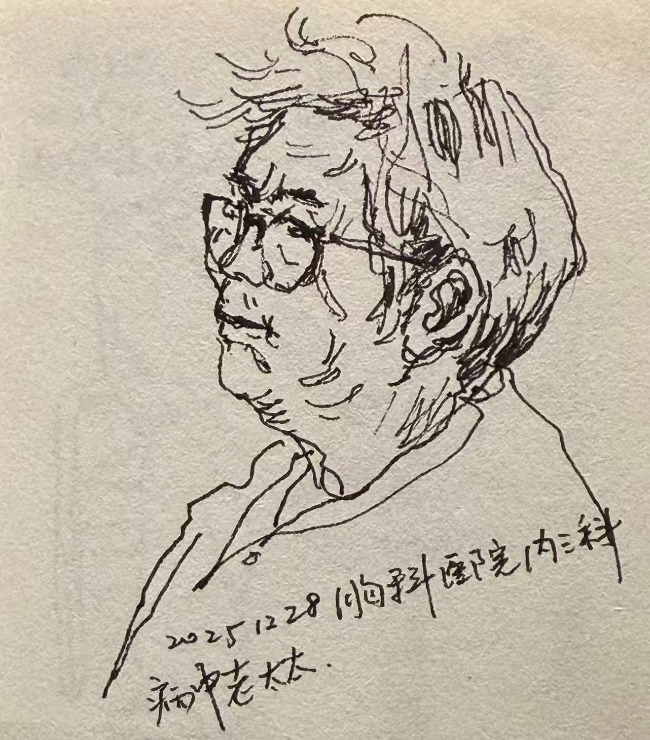 2025 12 28 胸科医院内三科
病中老太太.